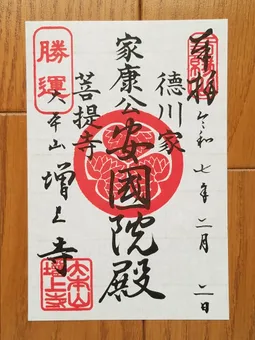 奉拝
令和七年二月二日
徳川家
家康公
安國院殿
菩提寺
勝運
大本山
増上寺
大本山
増上寺